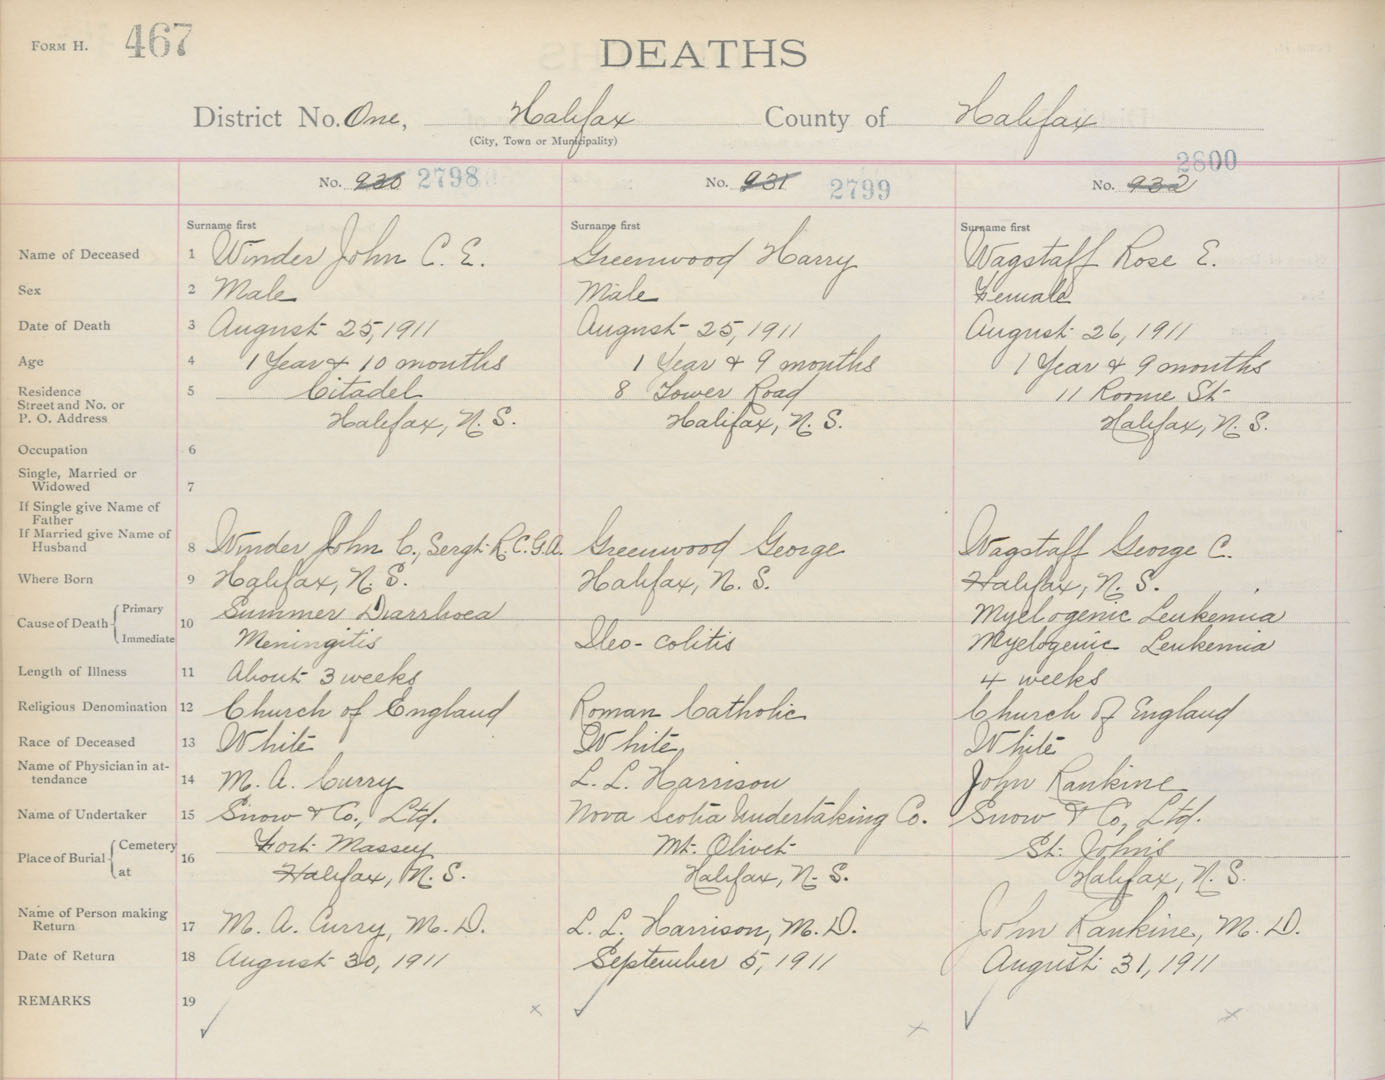 FORM H. 467
DEATHS
District No. One, Halifax County of Halifax
(City, Town or Municipality)
No. 930 2798 No. 931 2799 No. 932 2800
Surname first Surname first Surname first
Name of Deceased 1 Winder John C. E. Greenwood Harry Wagstaff Rose E.
Sex 2 Male Male Female
Date of Death 3 August 25, 1911 August 25, 1911 August 26, 1911
Age 4 1 Year & 10 months 1 Year & 9 months 1 Year & 9 months
Residence 5 Citadel 8 Tower Road 11 Roome St
Street and No. or
P. O. Address Halifax, N. S. Halifax, N. S. Halifax, N. S.
Occupation 6
Single, Married or
Widowed 7
If Single give Name of
Father
If Married give Name of
Husband 8 Winder John C., Sergt. R.C.G.A. Greenwood George Wagstaff George C.
Where Born 9 Halifax, N. S. Halifax, N. S. Halifax, N. S.
Cause of Death Primary 10 Summer Diarrhoea Myelogenic Leukemia
Immediate Meningitis Ileo-colitis Myelogenic Leukemia
Length of Illness 11 About 3 weeks 4 weeks
Religious Denomination 12 Church of England Roman Catholic Church of England
Race of Deceased 13 White White White
Name of Physician in at-
tendance 14 M. A. Curry L. L. Harrison John Rankine
Name of Undertaker 15 Snow & Co., Ltd. Nova Scotia Undertaking Co. Snow & Co, Ltd.
Place of Burial Cemetery 16 Fort Massey Mt. Olivet St. John's
at Halifax, N. S. Halifax, N. S. Halifax, N. S.
Name of Person making
Return 17 M. A. Curry, M. D. L. L. Harrison, M. D. John Rankine, M. D.
Date of Return 18 August 30, 1911 September 5, 1911 August 31, 1911
REMARKS 19